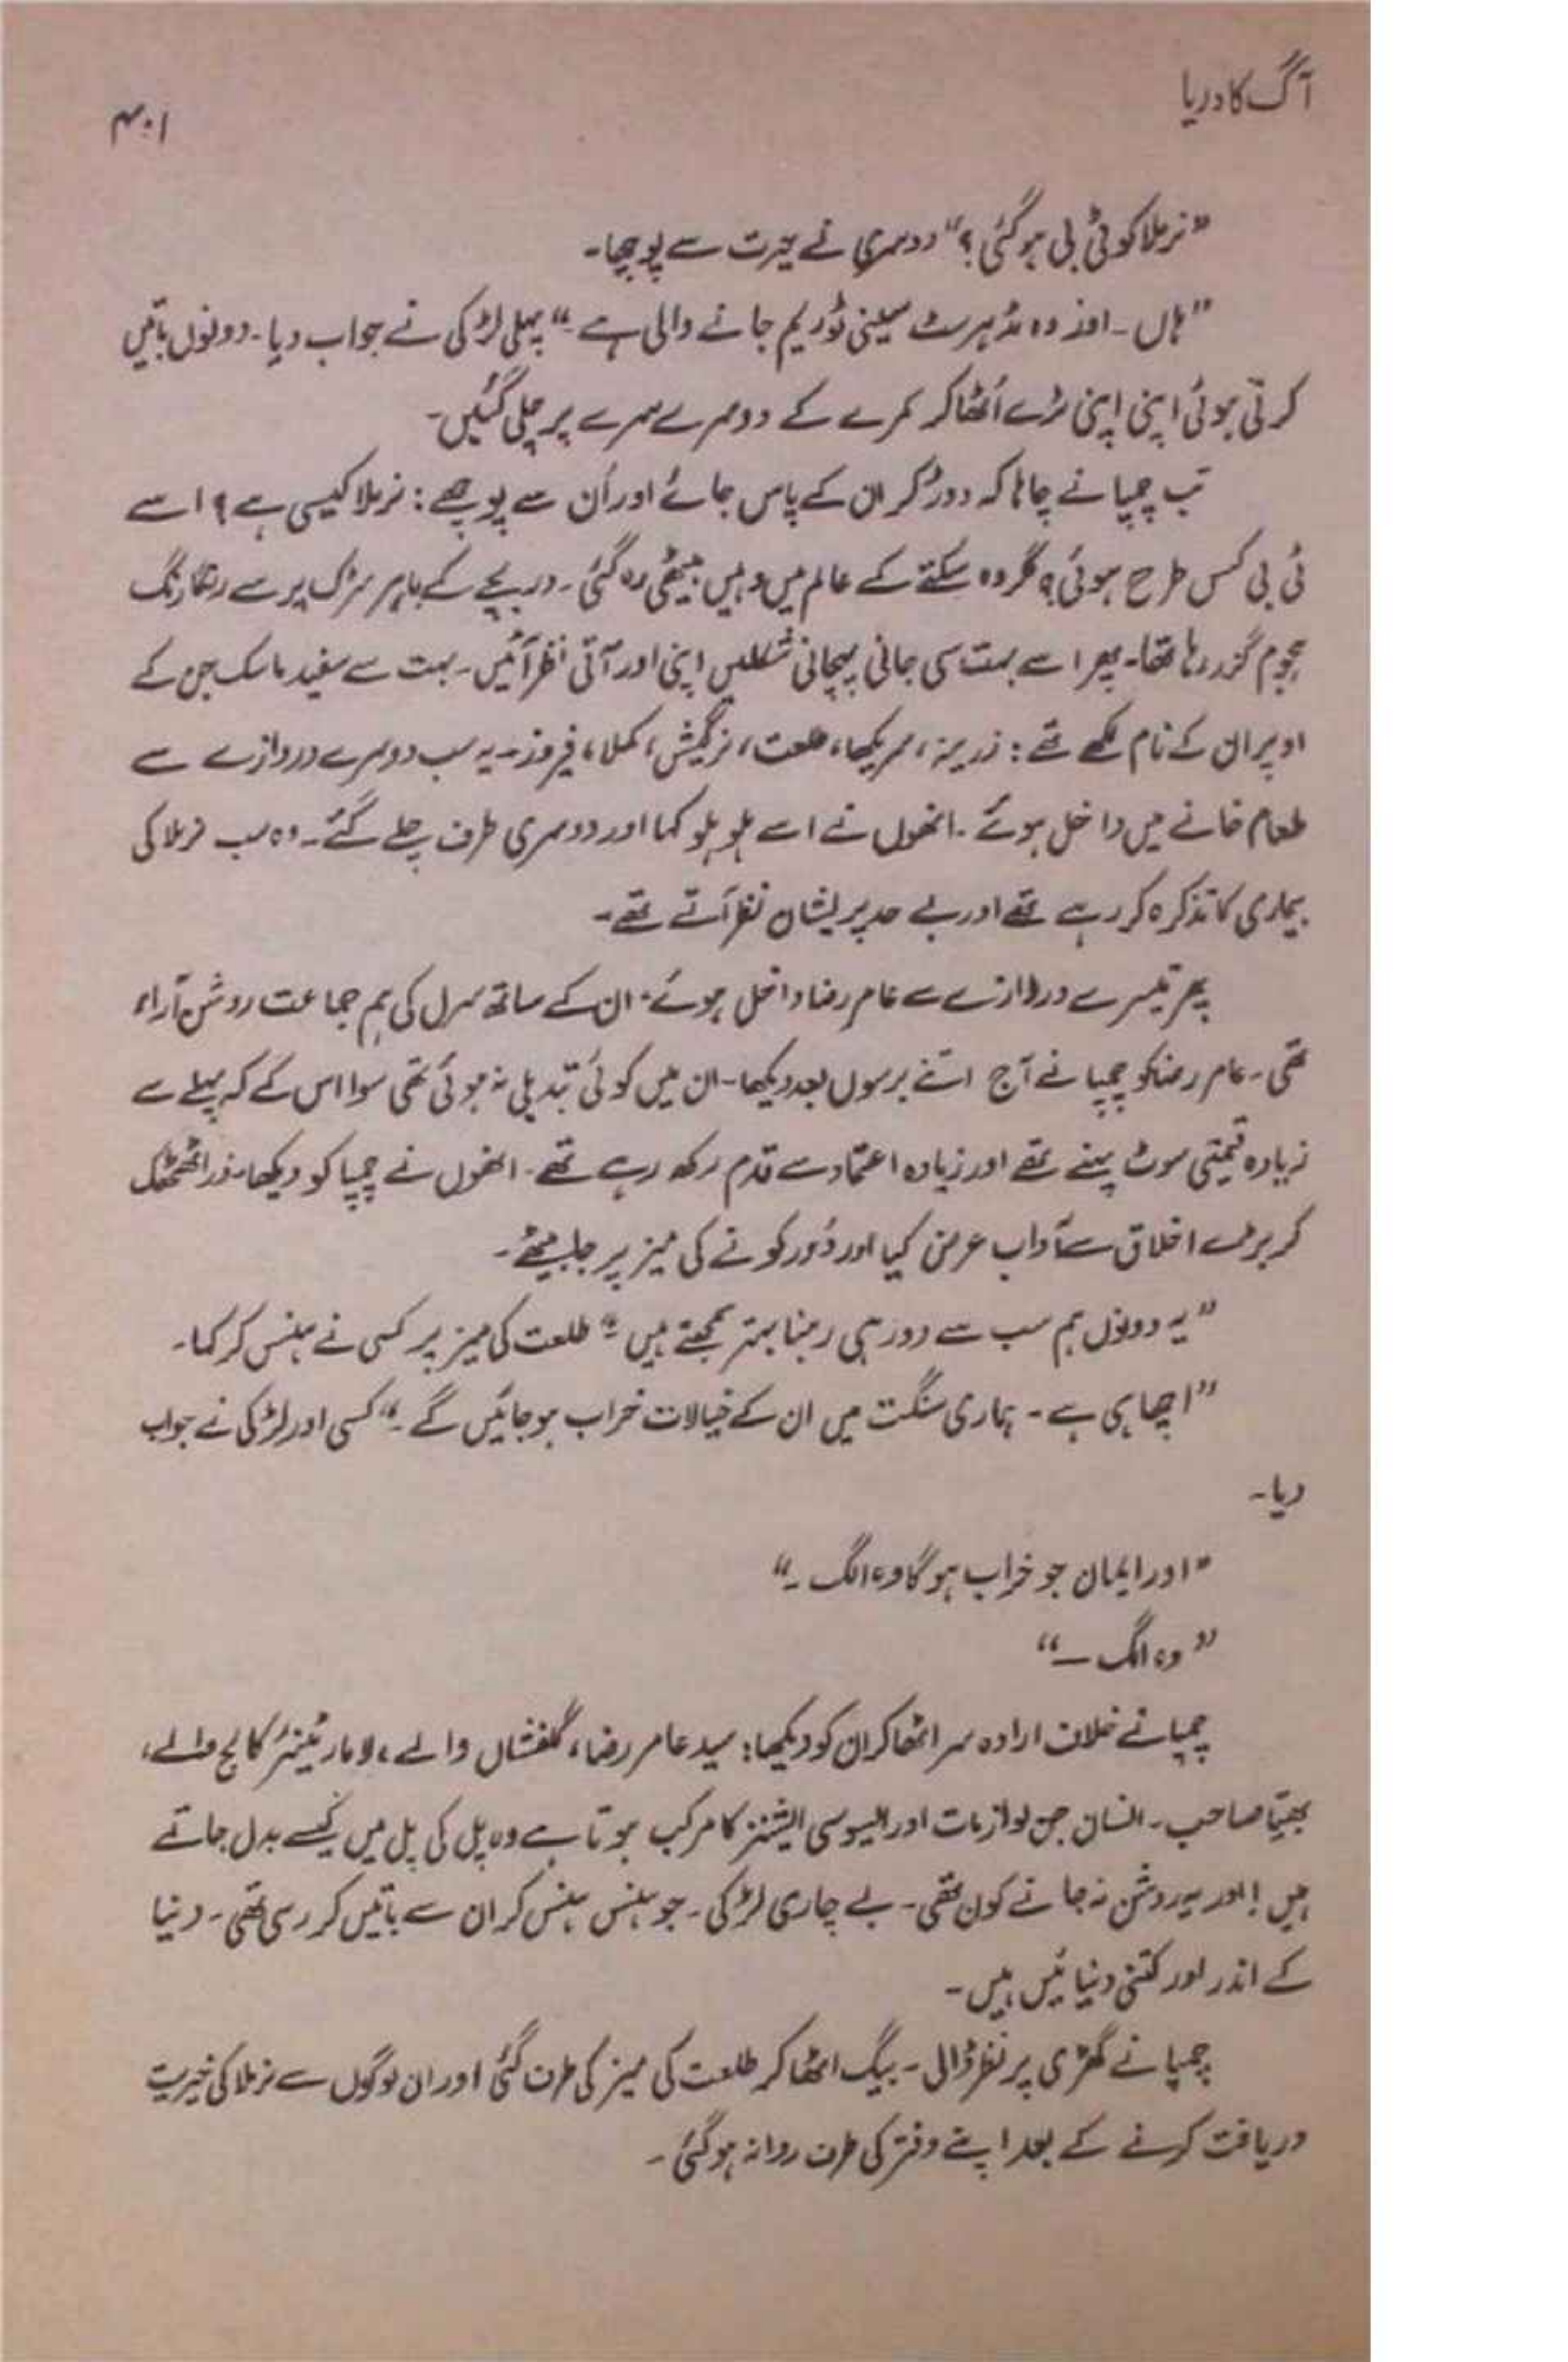 آگ کا دریا
۴۰۱
"نرملا کو ٹی بی ہو گئی؟" دوسری نے حیرت سے پوچھا۔
"ہاں۔ اور وہ مڈہرسٹ سینی ٹوریم جانے والی ہے۔" پہلی لڑکی نے جواب دیا۔ دونوں باتیں
کرتی ہوئی اپنی اپنی ٹرے اُٹھا کر کمرے کے دوسرے سرے پر چلی گئیں۔
تب چمپا نے چاہا کہ دوڑ کر ان کے پاس جائے اور اُن سے پوچھے: نرملا کیسی ہے؟ اسے
ٹی بی کس طرح ہوئی؟ مگر وہ سکتے کے عالم میں وہیں بیٹھی رہ گئی۔ دریچے کے باہر سڑک پر سے رنگا رنگ
ہجوم گزر رہا تھا۔ پھر اسے بہت سی جانی پہچانی شکلیں اپنی اور آتی نظر آئیں۔ بہت سے سفید ماسک جن کے
اوپر ان کے نام لکھے تھے: زرینہ، سریکھا، طلعت، نرگیش، کملا، فیروز۔ یہ سب دوسرے دروازے سے
طعام خانے میں داخل ہوئے۔ انھوں نے اسے ہلو ہلو کہا اور دوسری طرف چلے گئے۔ وہ سب نرملا کی
بیماری کا تذکرہ کر رہے تھے اور بے حد پریشان نظر آتے تھے۔
پھر تیسرے دروازے سے عامر رضا داخل ہوئے۔ ان کے ساتھ سرل کی ہم جماعت روشن آراء
تھی۔ عامر رضا کو چمپا نے آج اتنے برسوں بعد دیکھا۔ ان میں کوئی تبدیلی نہ ہوئی تھی سوا اس کے کہ پہلے سے
زیادہ قیمتی سوٹ پہنے تھے اور زیادہ اعتماد سے قدم رکھ رہے تھے۔ انھوں نے چمپا کو دیکھا، ذرا ٹھٹھک
کر بڑے اخلاق سے آداب عرض کیا اور دُور کونے کی میز پر جا بیٹھے۔
"یہ دونوں ہم سب سے دور ہی رہنا بہتر سمجھتے ہیں۔" طلعت کی میز پر کسی نے ہنس کر کہا۔
"اچھا ہی ہے۔ ہماری سنگت میں ان کے خیالات خراب ہو جائیں گے۔" کسی اور لڑکی نے جواب
دیا۔
"اور ایمان جو خراب ہو گا وہ الگ۔"
"وہ الگ —"
چمپا نے خلاف ارادہ سر اٹھا کر ان کو دیکھا: سید عامر رضا، گلفشاں والے، لامارٹینئر کالج والے،
بھیّا صاحب۔ انسان جن لوازمات اور ایسوسی ایشنز کا مرکب ہوتا ہے وہ پل کی پل میں کیسے بدل جاتے
ہیں! اور یہ روشن نہ جانے کون تھی۔ بے چاری لڑکی۔ جو ہنس ہنس کر ان سے باتیں کر رہی تھی۔ دنیا
کے اندر اور کتنی دنیائیں ہیں۔
چمپا نے گھڑی پر نظر ڈالی۔ بیگ اٹھا کر طلعت کی میز کی طرف گئی اور ان لوگوں سے نرملا کی خیریت
دریافت کرنے کے بعد اپنے دفتر کی طرف روانہ ہو گئی۔